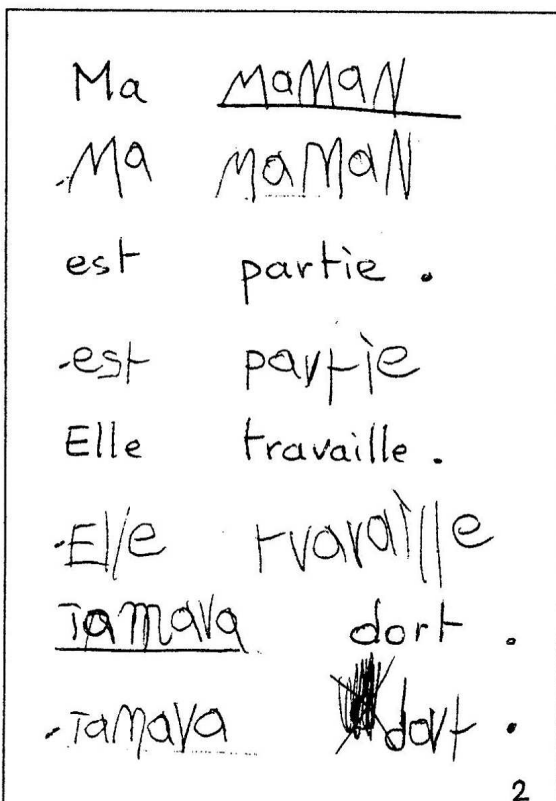 Ma MaMaN
Ma MaMaN
est partie.
est partie
Elle travaille.
Elle travaille
Tamara dort.
Tamara dort.
2